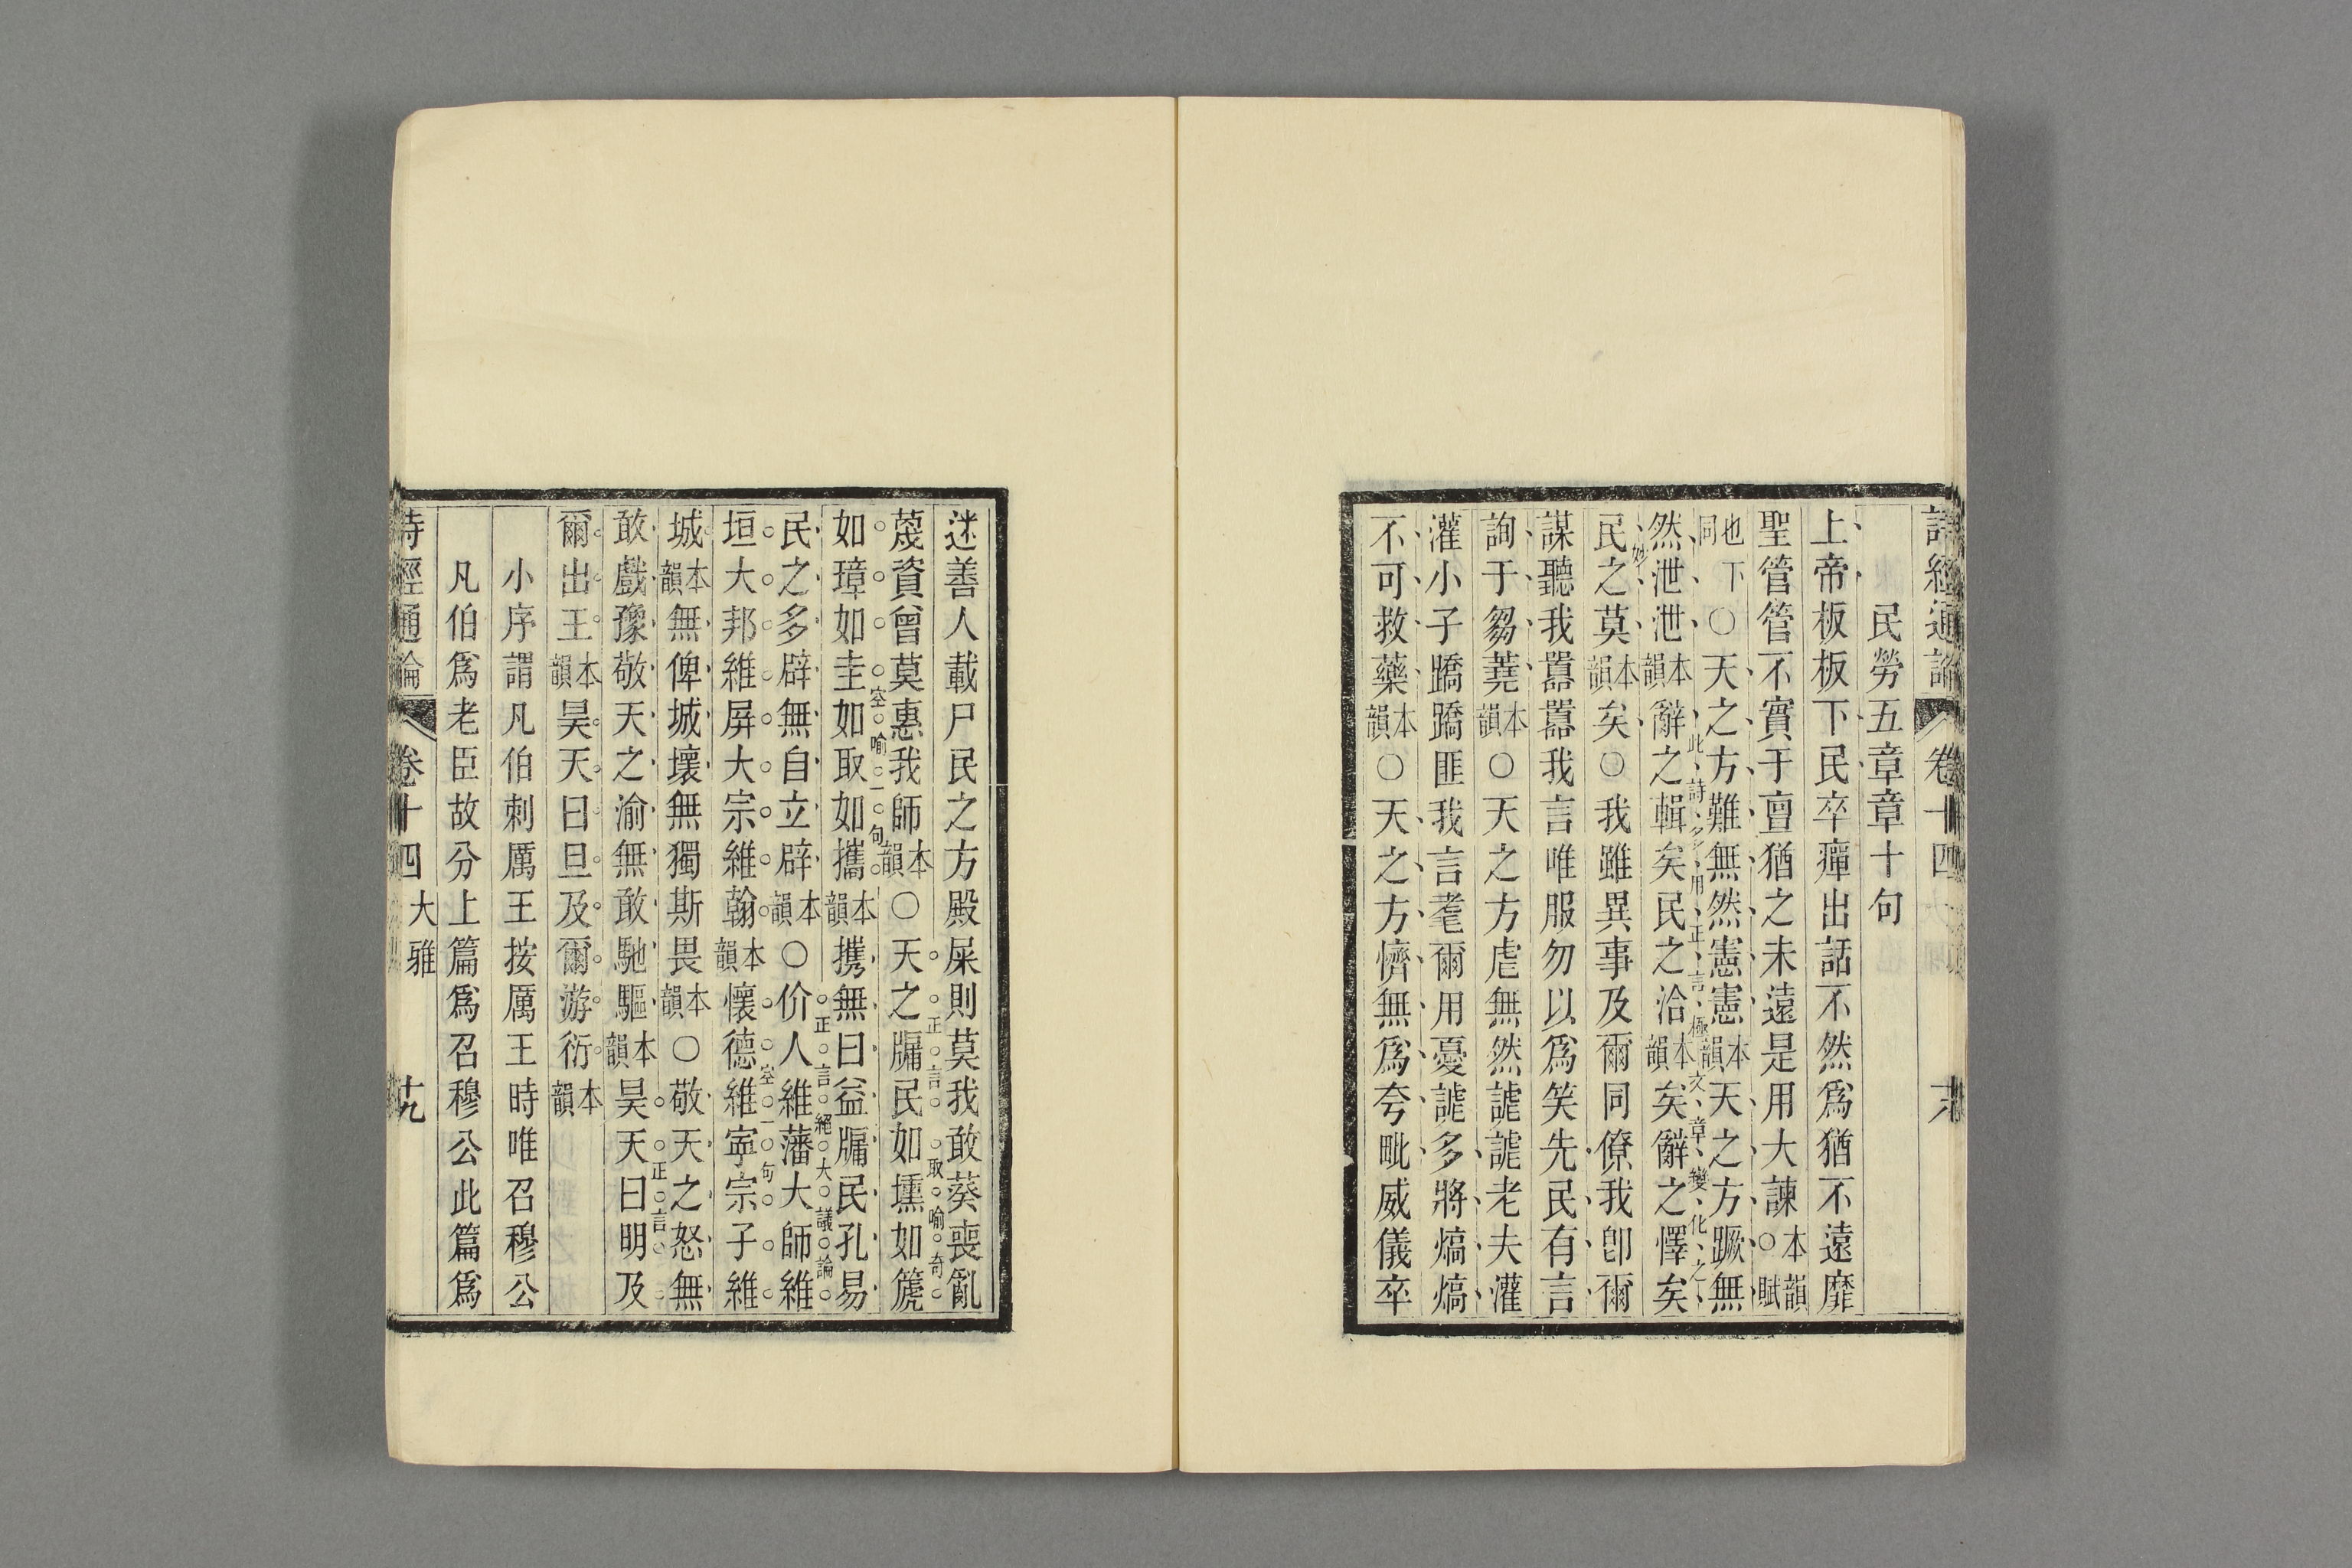 詩經通論 卷十四
民勞五章章十句
上帝板板下民卒癉出話不然爲猶不遠靡
聖管管不實于亶猶之未遠是用大諫本韻○賦
也下同○天之方難無然憲憲本韻天之方蹶無
然泄泄本韻辭之輯矣民之洽本韻矣辭之懌矣
此詩多用正言極文章變化之妙
民之莫本韻矣○我雖異事及爾同僚我卽爾
謀聽我嚻嚻我言唯服勿以爲笑先民有言
詢于芻蕘本韻○天之方虐無然謔謔老夫灌
灌小子蹻蹻匪我言耄爾用憂謔多將熇熇
不可救藥本韻○天之方懠無爲夸毗威儀卒
迷善人載尸民之方殿屎則莫我敢葵喪亂
蔑資曾莫惠我師本韻○天之牖民如壎如篪
正言取喻奇
如璋如圭如取如攜本韻攜無曰益牖民孔易
空喻一句
民之多辟無自立辟本韻○价人維藩大師維
正言絕大議論
垣大邦維屏大宗維翰本韻懷德維寧宗子維
空一句
城本韻無俾城壞無獨斯畏本韻○敬天之怒無
敢戲豫敬天之渝無敢馳驅本韻昊天曰明及
正言
爾出王本韻昊天曰旦及爾游衍本韻
小序謂凡伯刺厲王按厲王時唯召穆公
凡伯爲老臣故分上篇爲召穆公此篇爲
詩經通論 卷十四 大雅 十九